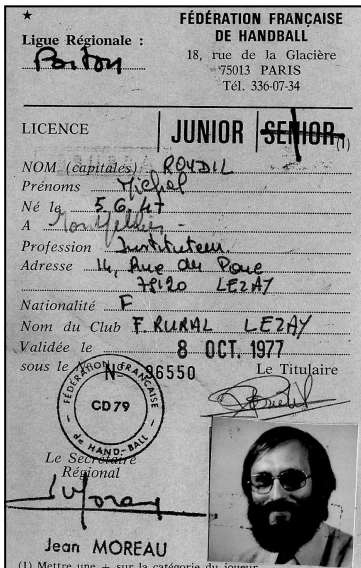 ★
FÉDÉRATION FRANÇAISE
DE HANDBALL
18, rue de la Glacière
75013 PARIS
Tél. 336-07-34
Ligue Régionale :
Poitou
LICENCE JUNIOR SENIOR (1)
NOM (capitales) ROUDIL
Prénoms Michel
Né le 5.6.47
A Montpellier
Profession Instituteur
Adresse 14, Rue du Parc
79120 LEZAY
Nationalité F
Nom du Club F. RURAL LEZAY
Validée le 8 OCT. 1977
sous le N° 96550
Le Titulaire
FÉDÉRATION FRANÇAISE
CD 79
de HAND-BALL
Le Secrétaire
Régional
Jean MOREAU
(1) Mettre une + sur la catégorie du joueur